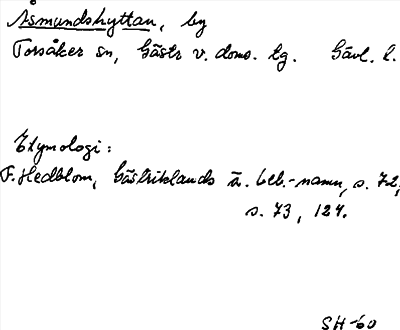 Åsmundshyttan, by
Torsåker sn, Gästr v. doms. tg. Gävl. l.
Etymologi:
F. Hedblom, Gästriklands ä. beb.-namn, s. 72,
s. 73, 124.
SH-60